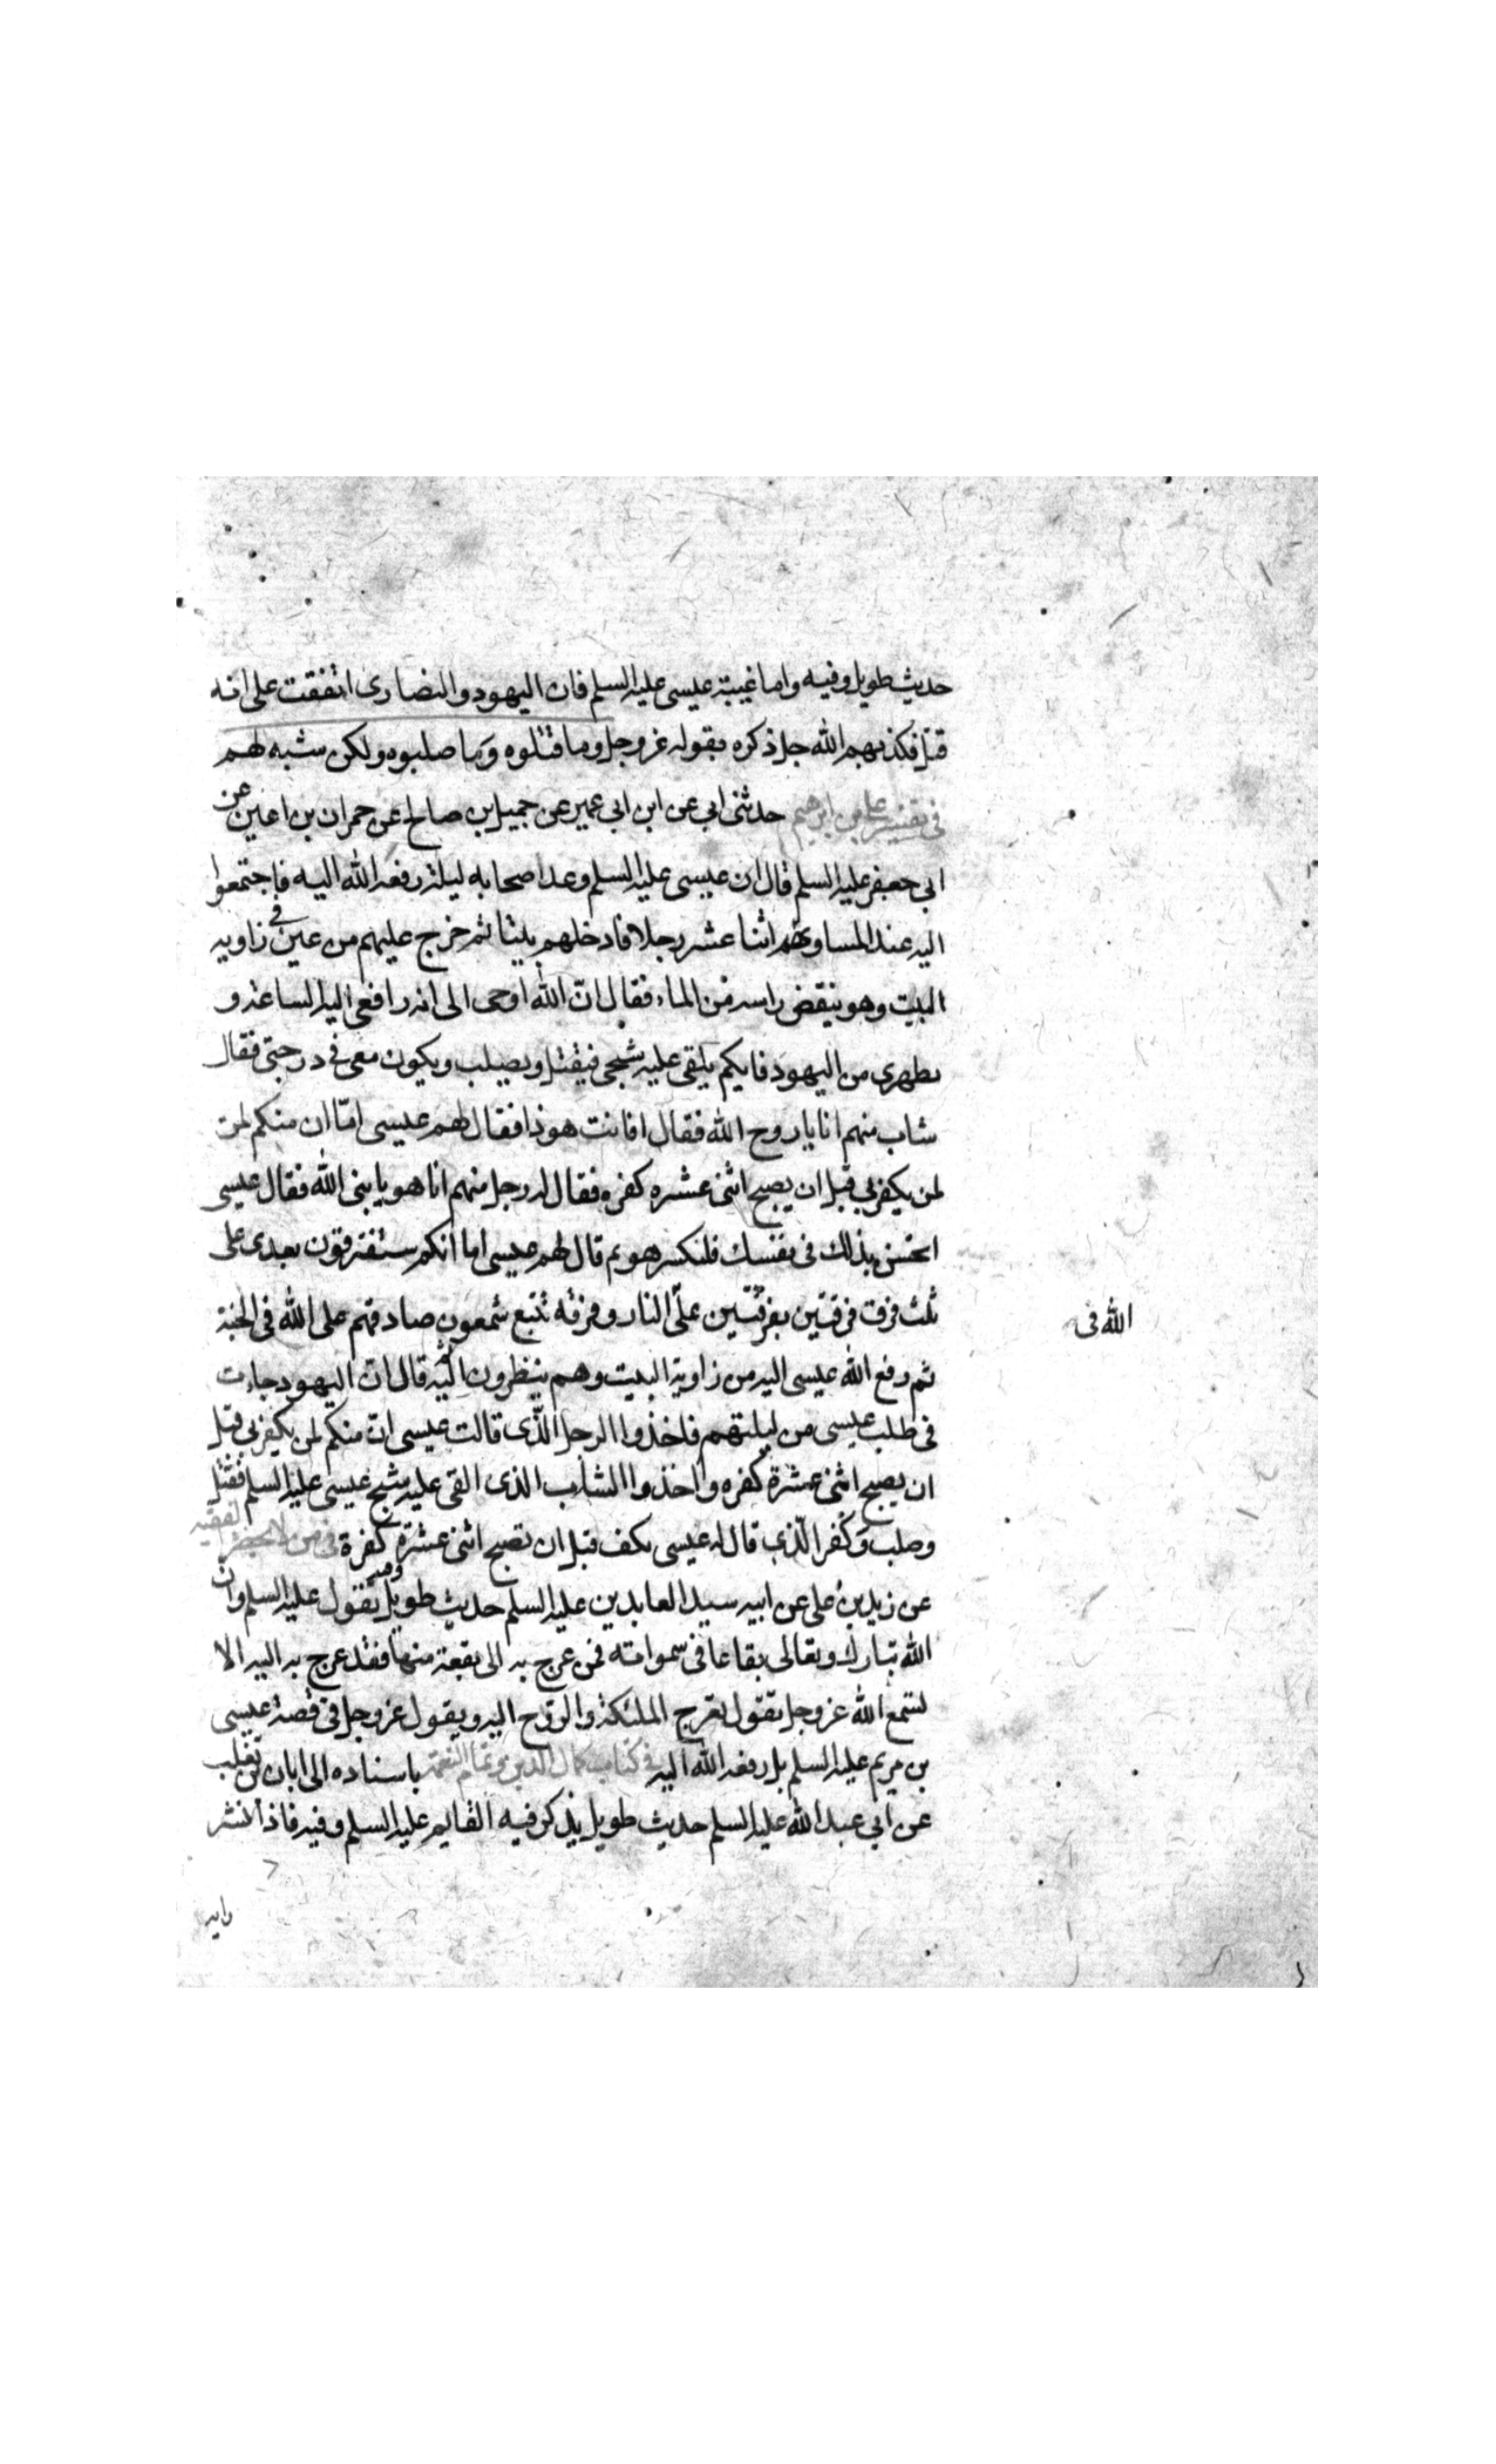 حديث طويل وفيه واما غيبة عيسى عليه السلم فان اليهود والنصارى اتفقت على انه
قتل فكذبهم الله جل ذكره بقوله عز وجل وما قتلوه وما صلبوه ولكن شبه لهم
في تفسير على بن ابرهيم حدثنى ابى عن ابن ابى عمير عن جميل بن صالح عن حمران بن اعين عن
ابى جعفر عليه السلم قال ان عيسى عليه السلم وعد اصحابه ليلة رفعه الله اليه فاجتمعوا
اليه عند المسا وهم اثنا عشر رجلا فادخلهم بيتا ثم خرج عليهم من عين في زاويه
البيت وهو ينقض راسه من الماء فقال ان الله اوحى الى انه رافعى اليه الساعة و
يطهرى من اليهود فايكم يلقى عليه شبحى فيقتل ويصلب ويكون معى في درجتى فقال
شاب منهم انا يا روح الله فقال افانت هو ذا فقال لهم عيسى اما ان منكم لمن
لمن يكفر بى قبل ان يصبح اثنى عشره كفره فقال له رجل منهم انا هو يا بنى الله فقال عيسى
اتحسن بذلك فى نفسك فلنكسر هو ثم قال لهم عيسى اما انكم ستفترقون بعدى على
ثلث فرق فرقتين بفرقتين على النار وفرقه تتبع شمعون صادقهم على الله فى الجنة
الله فى
ثم رفع الله عيسى اليه من زاوية البيت وهم ينظرون اليه ثم قال ان اليهود جاءت
فى طلب عيسى من ليلتهم فاخذوا الرجل الذى قالت عيسى ان منكم لمن يكفر بى قبل
ان يصبح اثنى عشرة كفره واخذوا الشاب الذى القى عليه شبح عيسى عليه السلم فقتل
وصلب وكفر الذى قال له عيسى يكف قبل ان تصبح اثنى عشرة كفرة فى من لا يحضره الفقيه
عن زيد بن على عن ابيه سيد العابدين عليه السلم حديث طويل وفيه يقول عليه السلم وان
الله تبارك وتعالى بقاعا فى سمواته فمن عرج به الى بقعة منها فقد عرج به اليه الا
تسمع الله عز وجل يقول تعرج الملئكة والروح اليه ويقول عز وجل فى قصة عيسى
بن مريم عليه السلم بل رفعه الله اليه فى كتاب كمال الدين وتمام النعمة باسناده الى ابان بن تغلب
عن ابى عبد الله عليه السلم حديث طويل يذكر فيه القايم عليه السلم وفيه فاذا نشر
رايه